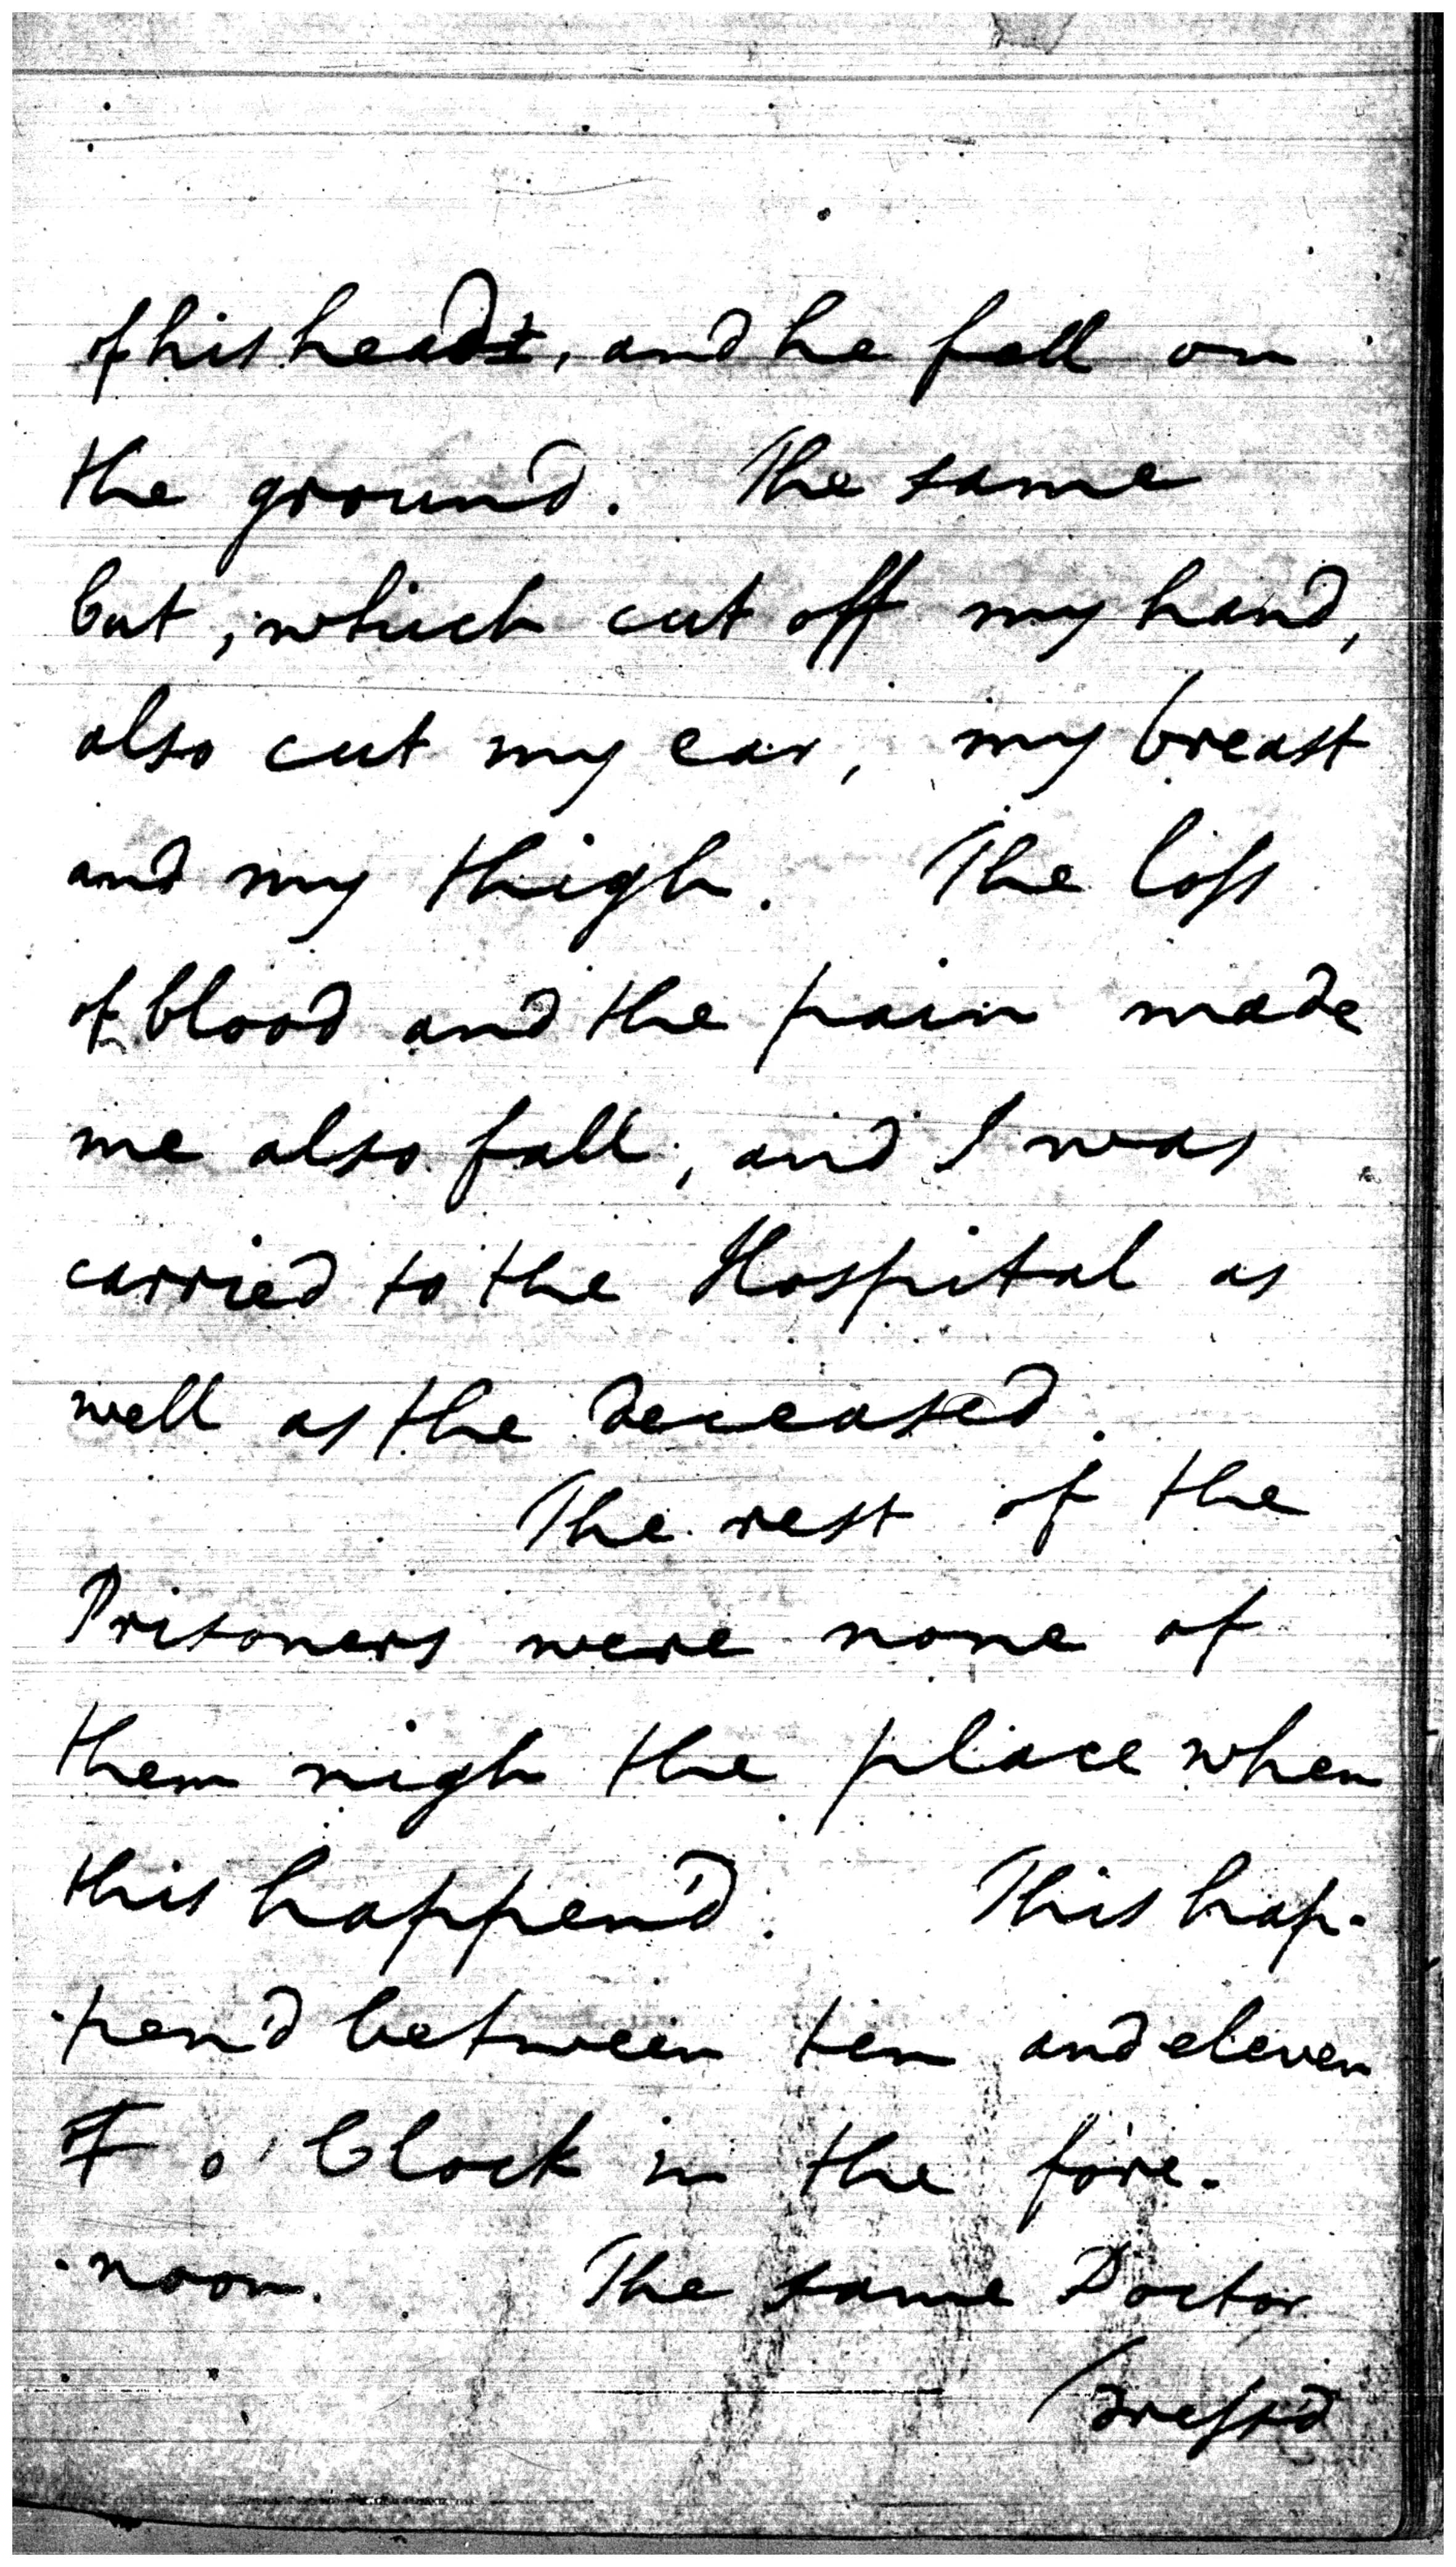 of his head, and he fell on
the ground. The same
but, which cut off my hand,
also cut my ear, my breast
and my thigh. The loss
of blood and the pain made
me also fall, and I was
carried to the Hospital as
well as the deceased.
The rest of the
Prisoners were none of
them nigh the place when
this happen'd. This hap-
-pen'd between ten and eleven
of o'Clock in the fore-
-noon. The same Doctor
dress'd